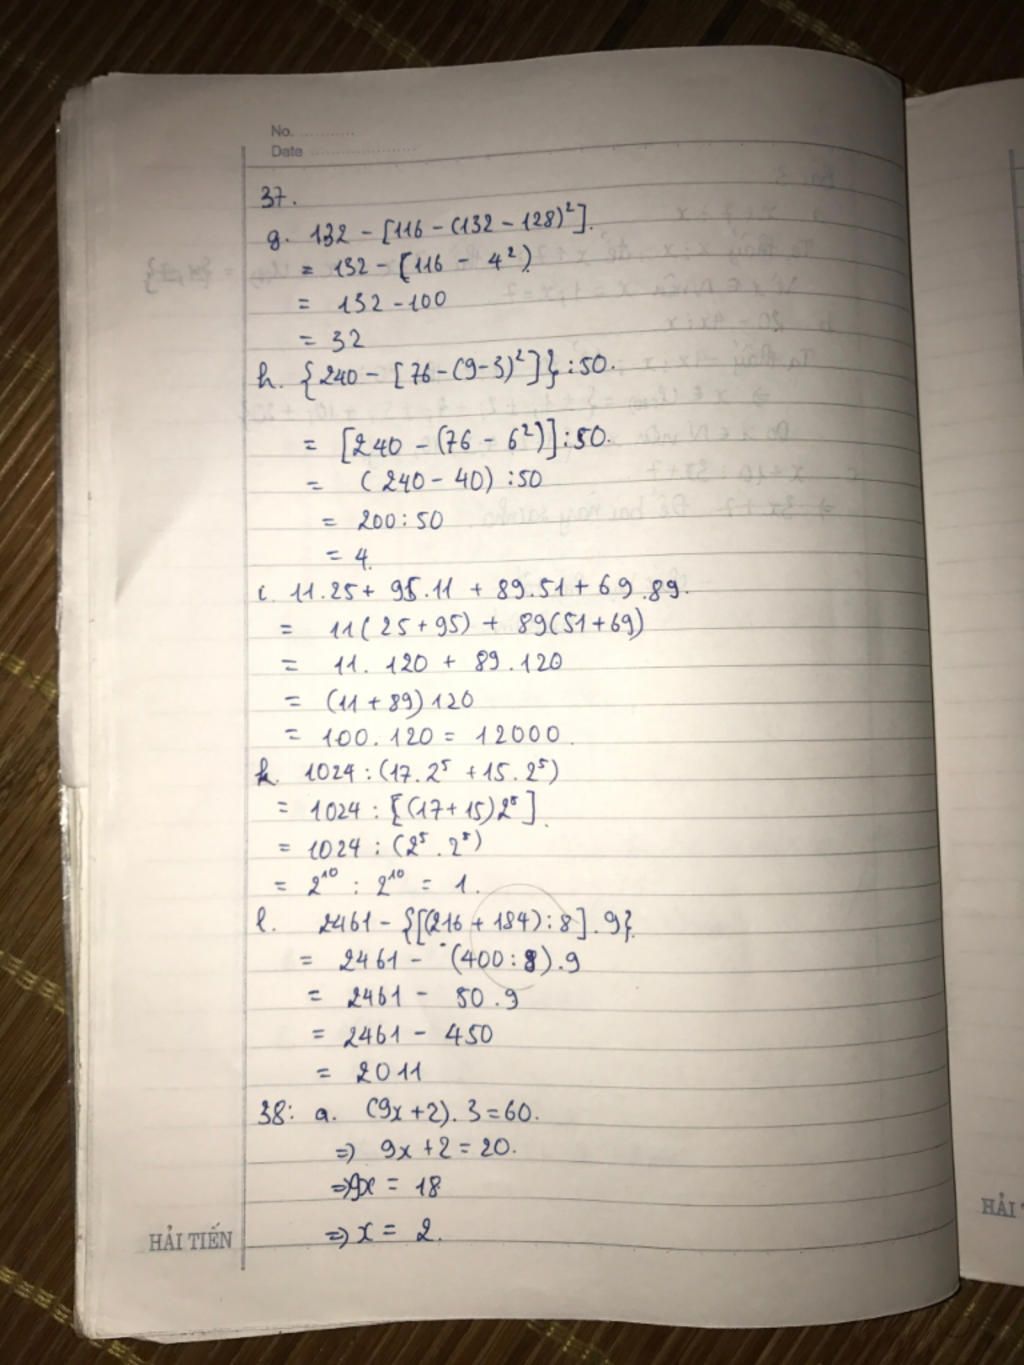 No. ............
Date ....................
37.
g. 132 - [116 - (132 - 128)²].
= 132 - [116 - 4²)
= 132 - 100
= 32
h. {240 - [76 - (9-3)²]} : 50.
= [240 - (76 - 6²)] : 50.
= (240 - 40) : 50
= 200 : 50
= 4.
i. 11.25 + 95.11 + 89.51 + 69.89.
= 11(25+95) + 89(51+69)
= 11. 120 + 89.120
= (11 + 89) 120
= 100.120 = 12000.
k. 1024 : (17.2⁵ + 15.2⁵)
= 1024 : [(17+15)2⁵].
= 1024 : (2⁵.2⁵)
= 2¹⁰ : 2¹⁰ = 1.
l. 2461 - {[(216 + 184) : 8].9}.
= 2461 - (400 : 8).9
= 2461 - 50.9
= 2461 - 450
= 2011
38: a. (9x+2).3 = 60.
=) 9x + 2 = 20.
=) 9x = 18
=) x = 2.
HẢI TIẾN
HẢI